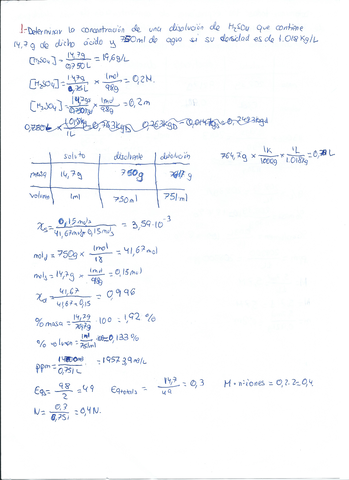 1.- Determinar la concentración de una disolución de H₂SO₄ que contiene
14,7g de dicho ácido y 750ml de agua si su densidad es de 1.018Kg/L
[H₂SO₄] = 14,7g / 0,750L = 19,6g/L
[H₂SO₄] = 14,7g / 0,75L × 1mol / 98g = 0,2M.
[H₂SO₄] = 14,7g / × 1mol / 98g = 0,2m
764,7g × 1K / 1000g × 1L / 1.018Kg = L
soluto disolvente disolución
masa 14,7g 750g
volumen 1ml 750ml 751ml
Xs = 0,15mols / 41,67mol+0,15mols = 3,59·10⁻³
mold = 750g × 1mol / 18 = 41,67mol
mols = 14,7g × 1mol / 98g = 0,15mol
Xd = 41,67 / 41,67+0,15 = 0,996
% masa = 14,7g / · 100 = 1,92 %
% volumen = 1ml / 751ml = 0,133%
ppm = / 0,751L = 19573,9mg/L
Eqs = 98 / 2 = 49 Eqtotals = 14,7 / 49 = 0,3 M · nºiones = 0,2·2=0,4.
N = 0,3 / 0,751 = 0,4N.